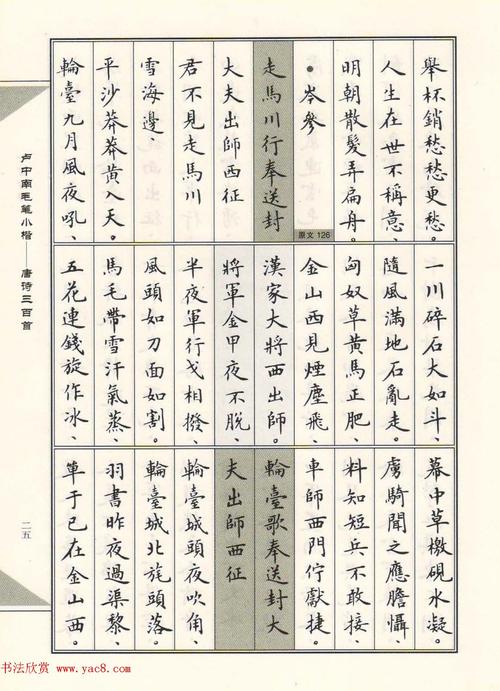 舉杯銷愁愁更愁。
人生在世不稱意、
明朝散髮弄扁舟。
●岑參
走馬川行奉送封
大夫出師西征
原文 126
君不見走馬川
雪海邊、
平沙莽莽黃入天。
輪臺九月風夜吼、
一川碎石大如斗、
隨風滿地石亂走。
匈奴草黃馬正肥、
金山西見煙塵飛、
漢家大將西出師。
將軍金甲夜不脫、
半夜軍行戈相撥、
風頭如刀面如割。
馬毛帶雪汗氣蒸、
五花連錢旋作冰、
幕中草檄硯水凝。
虜騎聞之應膽懾、
料知短兵不敢接、
車師西門佇獻捷。
輪臺歌奉送封大
夫出師西征
輪臺城頭夜吹角、
輪臺城北旄頭落。
羽書昨夜過渠黎、
單于已在金山西。
卢中南毛笔小楷——唐诗三百首
二五
书法欣赏 www.yac8.com